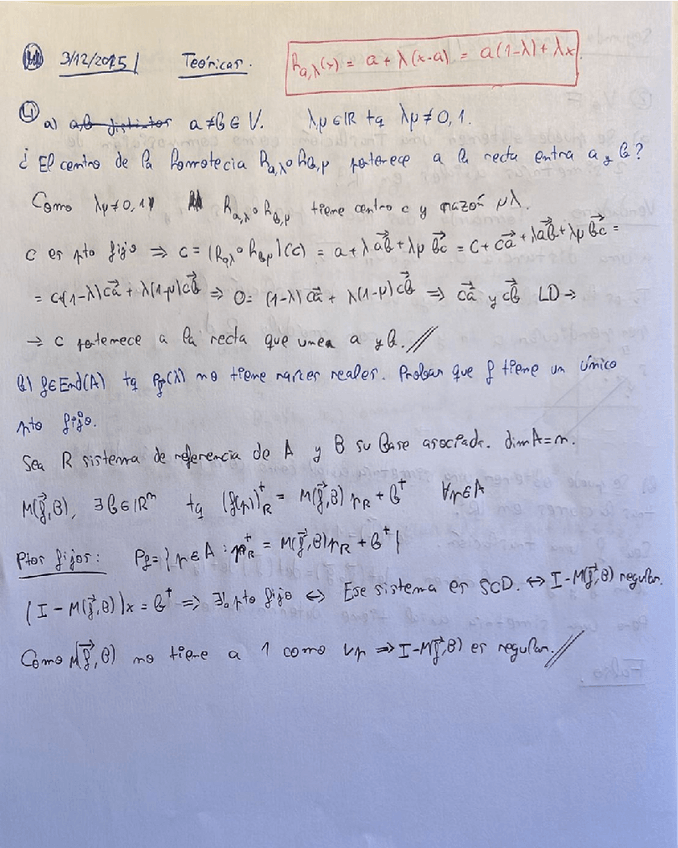 3/12/2015 Teóricas. h_{a,λ}(x) = a + λ(x-a) = a(1-λ) + λx
④ a) a,b distintos a≠b∈V. λμ∈ℝ tq λμ≠0,1.
¿El centro de la homotecia h_{a,λ}∘h_{b,μ} pertenece a la recta entra a y b?
Como λμ≠0,1, h_{a,λ}∘h_{b,μ} tiene centro c y razón μλ.
c es pto fijo ⇒ c = (h_{a,λ}∘h_{b,μ})(c) = a + λ\vec{ab} + λμ\vec{bc} = c + \vec{ca} + λ\vec{ab} + λμ\vec{bc} =
= c+(1-λ)\vec{ca} + λ(1-μ)\vec{cb} ⇒ 0 = (1-λ)\vec{ca} + λ(1-μ)\vec{cb} ⇒ \vec{ca} y \vec{cb} LD →
→ c pertenece a la recta que unea a y b. //
b) f∈End(A) tq P_f(λ) no tiene raíces reales. Probar que f tiene un único
pto fijo.
Sea R sistema de referencia de A y B su base asociada. dim A = n.
M(\vec{f},B), ∃b∈ℝ^n tq (f(p))_R^t = M(\vec{f},B) p_R + b^t ∀p∈A
Ptos fijos: P_f = {p∈A : p_R^t = M(\vec{f},B) p_R + b^t}
(I - M(\vec{f},B))x = b^t ⇒ ∃! pto fijo ⇔ Ese sistema es SCD. ⇔ I - M(\vec{f},B) regular.
Como M(\vec{f},B) no tiene a 1 como vp ⇒ I - M(\vec{f},B) es regular. //